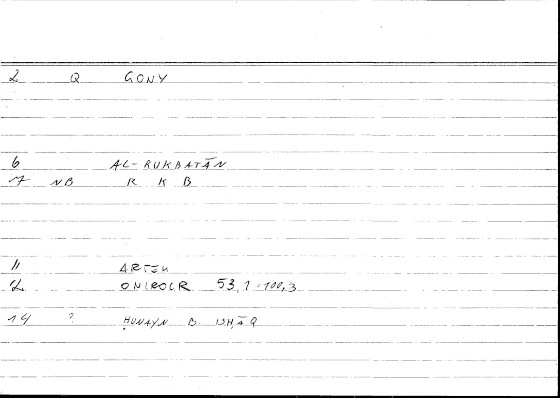 2 Q GONY
6 AL-RUKBATĀN
7 NB R K B
11 ARTEM
12 ONIROCR 53,1-100,3
14 ? ḤUNAYN B. ISḤĀQ